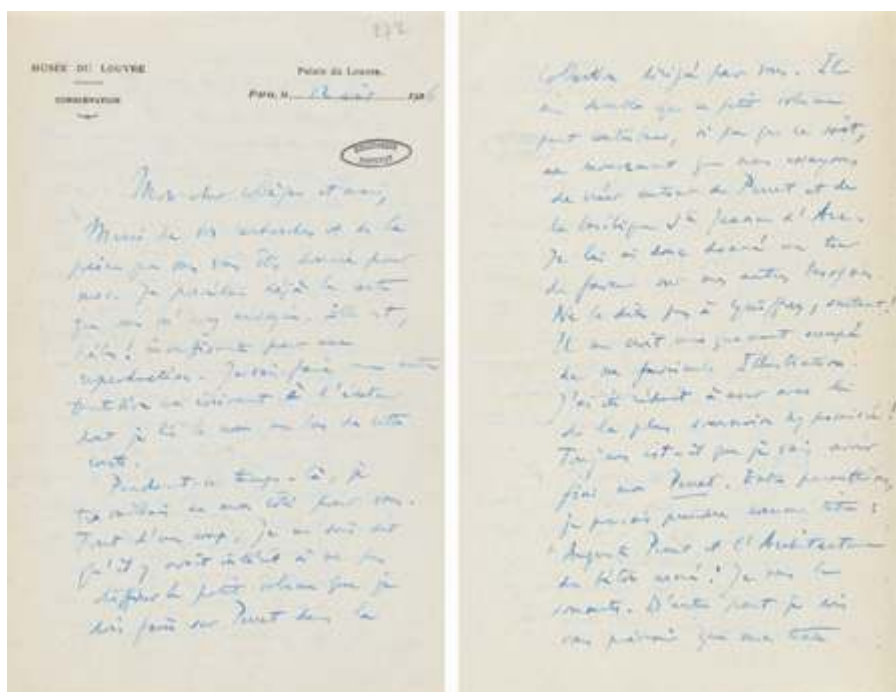 272
MUSÉE DU LOUVRE
Palais du Louvre,
CONSERVATION
Paris, le 12 192
Mon cher et ami,
Merci de vos recherches et de la
pièce que vous donnée pour
moi. Je possédais déjà la carte
que vous m'avez envoyée. Elle est,
hélas ! insuffisante pour une
reproduction. Je vais faire une autre
tentative en écrivant à l'
dont j'ai lu le nom au bas de cette
carte.
Pendant ce temps-là, je
travaillais de mon côté pour vous.
Tout d'un coup, je me suis dit
qu'il y avait intérêt à ne pas
différer le petit volume que je
dois faire sur Perret dans la
collection dirigée par vous. Il
me semble que ce petit volume
peut contribuer, si peu que ce soit,
au mouvement que nous essayons
de créer autour de Perret et de
la basilique Ste Jeanne d'Arc.
Je lui ai donc donné un tour
de faveur sur mes autres besognes.
Ne le dites pas à Guiffrey, surtout.
Il me croit uniquement occupé
de sa Illustration.
J'ai été réduit à user avec lui
de la plus hypocrisie !
Toujours est-il que je vais avoir
fini mon Perret. Entre parenthèses,
je pensais prendre comme titre :
"Auguste Perret et l'Architecture
du béton armé." Je vous le
soumets. D'autre part je dois
vous prévenir que mon texte